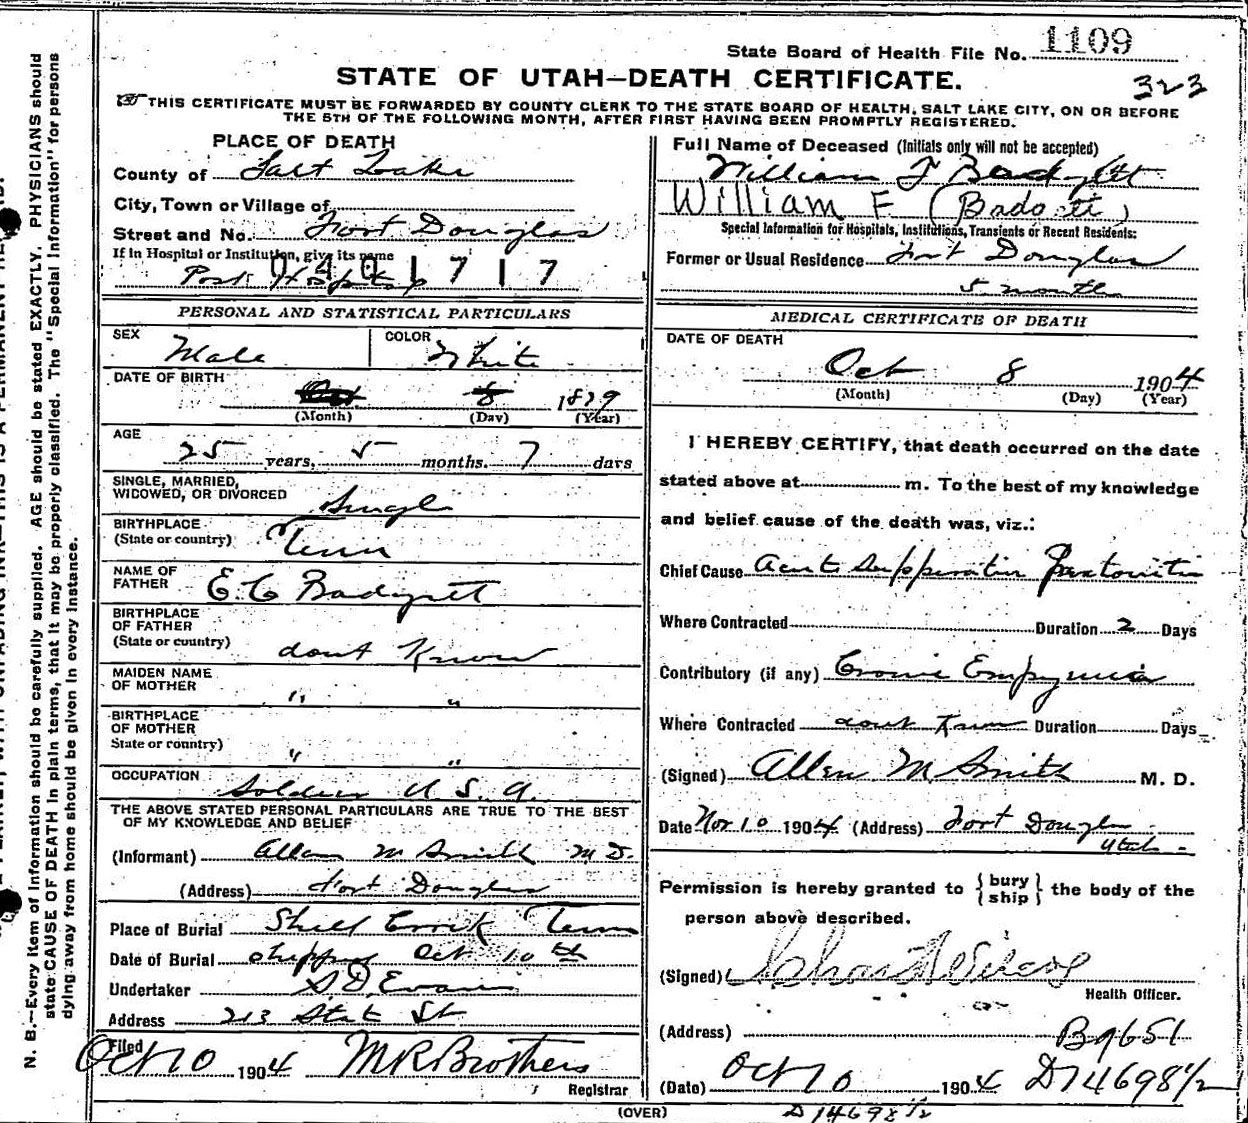 State Board of Health File No. 1109
STATE OF UTAH—DEATH CERTIFICATE.
323
THIS CERTIFICATE MUST BE FORWARDED BY COUNTY CLERK TO THE STATE BOARD OF HEALTH, SALT LAKE CITY, ON OR BEFORE
THE 5TH OF THE FOLLOWING MONTH, AFTER FIRST HAVING BEEN PROMPTLY REGISTERED.
PLACE OF DEATH
County of Salt Lake
City, Town or Village of
Street and No. Fort Douglas
If in Hospital or Institution, give its name
0401717
Post Hospital
PERSONAL AND STATISTICAL PARTICULARS
SEX Male COLOR White
DATE OF BIRTH
Oct 8 1879
(Month) (Day) (Year)
AGE
25 years, 5 months. 7 days
SINGLE, MARRIED,
WIDOWED, OR DIVORCED Single
BIRTHPLACE
(State or country) Tenn
NAME OF
FATHER E. C. Badgett
BIRTHPLACE
OF FATHER
(State or country) dont Know
MAIDEN NAME
OF MOTHER " "
BIRTHPLACE
OF MOTHER
State or country) " "
OCCUPATION Soldier U.S.A.
THE ABOVE STATED PERSONAL PARTICULARS ARE TRUE TO THE BEST
OF MY KNOWLEDGE AND BELIEF
(Informant) Allen M Smith M D.
(Address) Fort Douglas
Place of Burial Tenn
Date of Burial shipped Oct 10th
Undertaker S. D. Evans
Address 213 State St
Filed
Oct 10 1904 M R Brothers
Registrar
(OVER)
Full Name of Deceased (Initials only will not be accepted)
William F Badgett
William F (Badgett)
Special Information for Hospitals, Institutions, Transients or Recent Residents:
Former or Usual Residence Fort Douglas
5 months
MEDICAL CERTIFICATE OF DEATH
DATE OF DEATH
Oct 8 1904
(Month) (Day) (Year)
I HEREBY CERTIFY, that death occurred on the date
stated above at m. To the best of my knowledge
and belief cause of the death was, viz.:
Chief Cause Acute
Where Contracted Duration 2 Days
Contributory (if any) Empyemia
Where Contracted dont Know Duration Days
(Signed) Allen M Smith M. D.
Date Nov 10 1904 (Address) Fort Douglas
Utah
Permission is hereby granted to {bury ship} the body of the
person above described.
(Signed)
Health Officer.
(Address) B9651
(Date) Oct 10 1904 D14698½
D14698½
N. B.—Every item of information should be carefully supplied. AGE should be stated EXACTLY. PHYSICIANS should
state CAUSE OF DEATH in plain terms, that it may be properly classified. The "Special Information" for persons
dying away from home should be given in every instance.